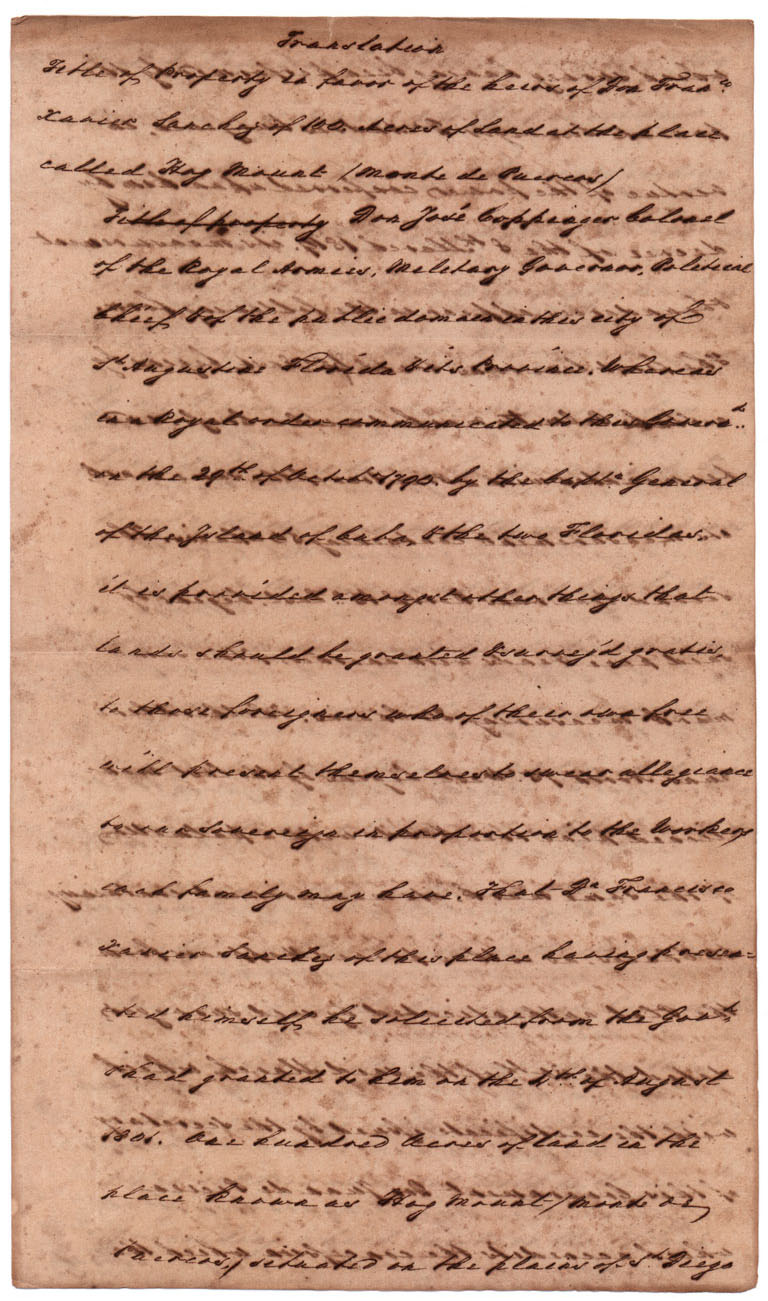 Translation
Title of Property in favor of the heirs of Don Fran.co
Xavier Sanchez of 100. Acres of Land at the place
called Hog Mount /Monte de Puercos/
Title of property Don José Coppinger Colonel
of the Royal Armies, Military Governor, Political
Chief & of the public domain in this city of
St Augustine Florida & its Province. Whereas
in a Royal order communicated to this Govern.t
on the 29th of Octob.r 1790. by the Capt.n General
of the Island of Cuba, & the two Floridas,
it is provided amongst other things that
lands should be granted & survey'd gratis
to those foreigners who of their own free
will present themselves to swear allegiance
to our Sovereign in proportion to the Workers
each family may have. That Dn Francisco
Xavier Sanchez of this place having presen=
ted himself, he solicited from the Gov.t
& had granted to him on the of August
One hundred Acres of land in the
place known as Hog Mount /Monte de
Puercos,/ situated on the plains of St. Diego